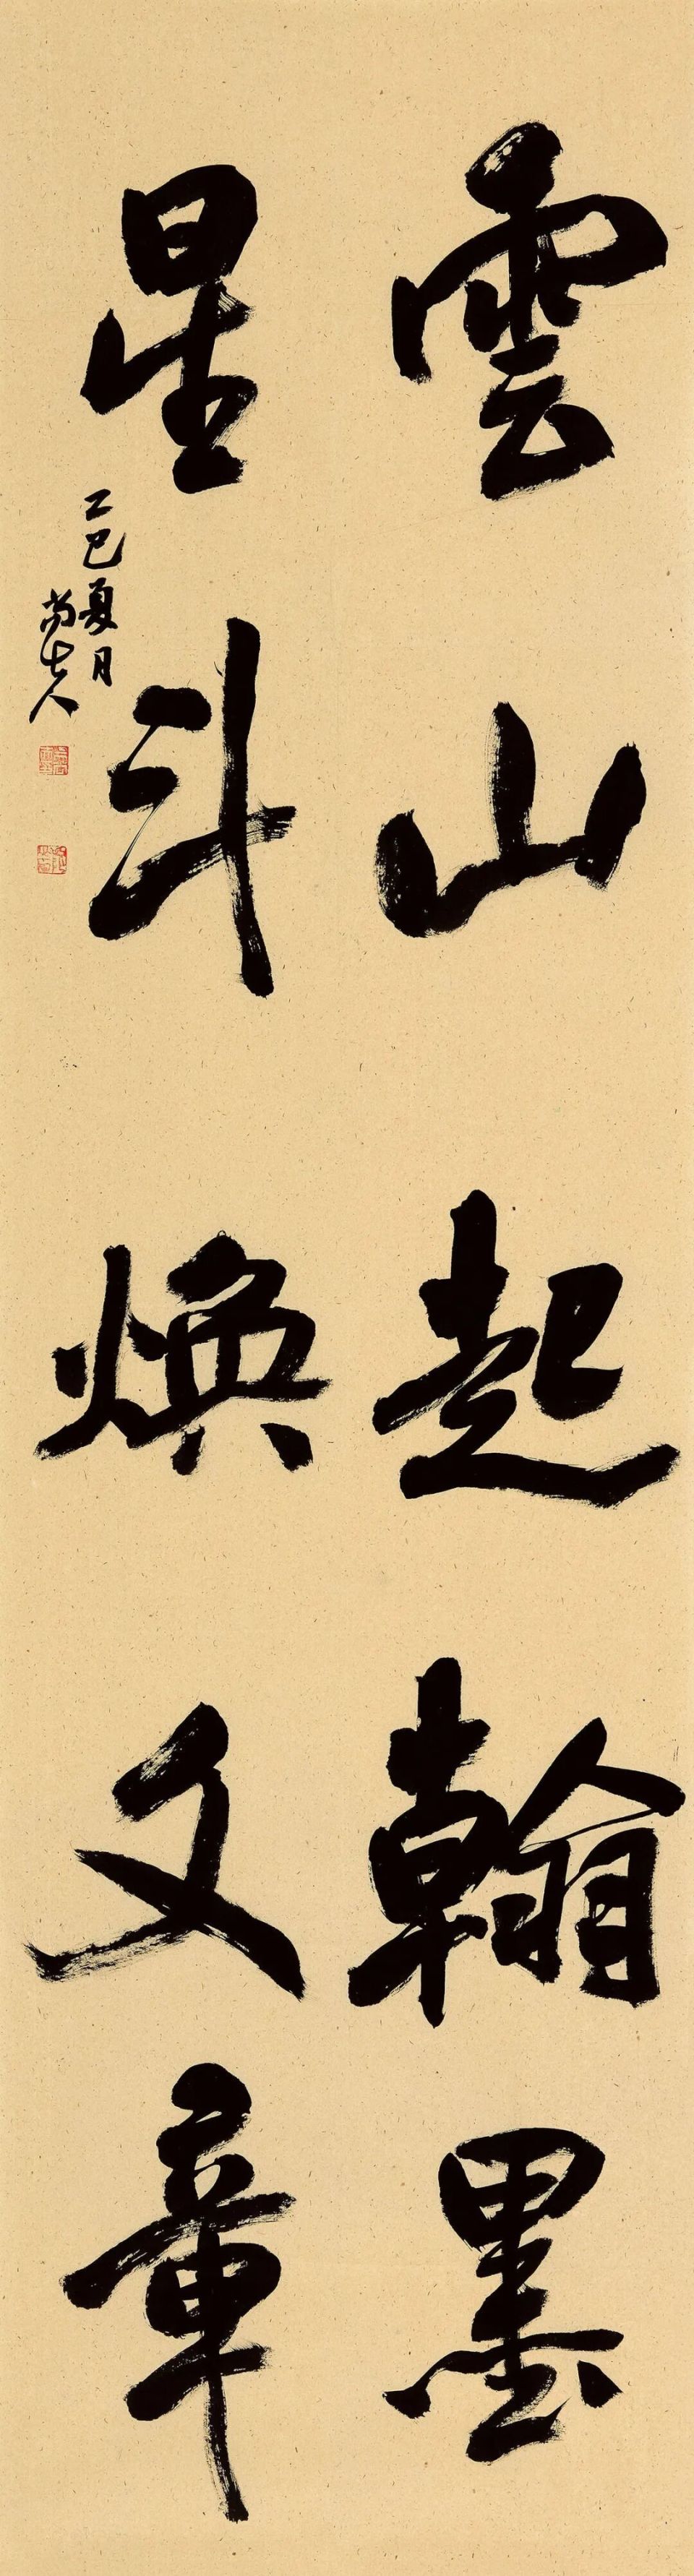 雲山起翰墨
星斗煥文章
乙巳夏月
尚古人